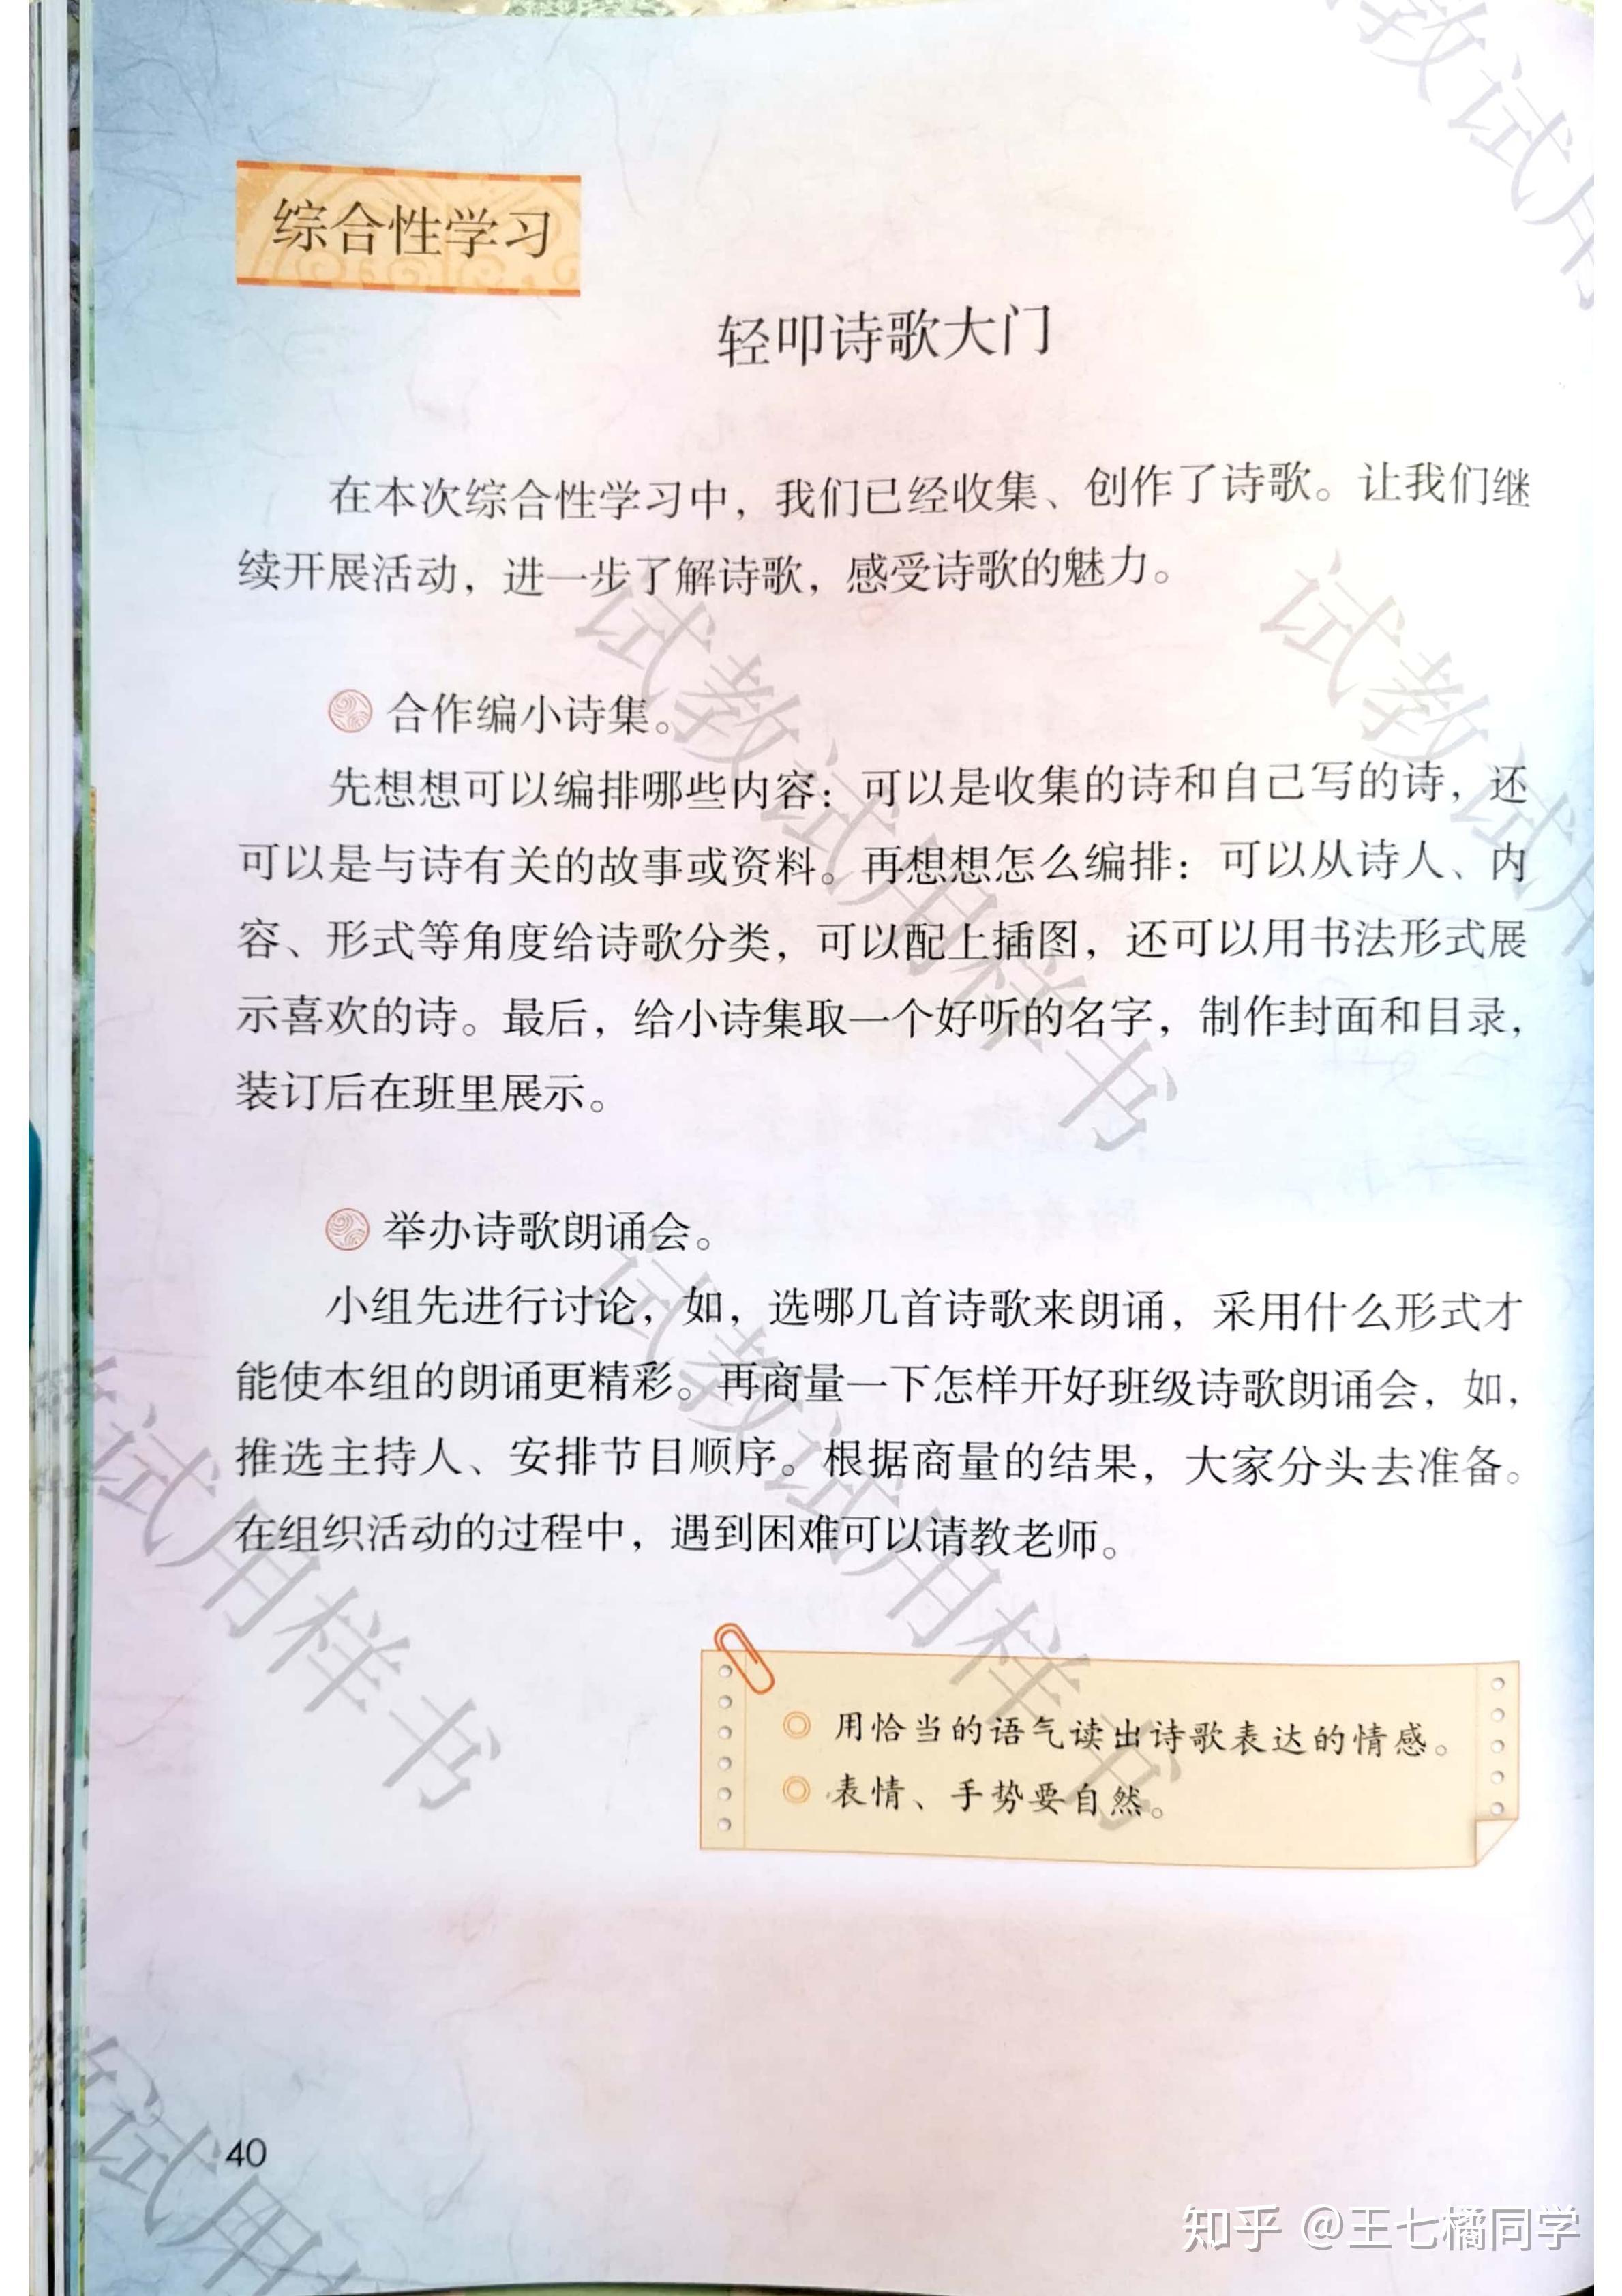 综合性学习
轻叩诗歌大门
在本次综合性学习中，我们已经收集、创作了诗歌。让我们继
续开展活动，进一步了解诗歌，感受诗歌的魅力。
合作编小诗集。
先想想可以编排哪些内容：可以是收集的诗和自己写的诗，还
可以是与诗有关的故事或资料。再想想怎么编排：可以从诗人、内
容、形式等角度给诗歌分类，可以配上插图，还可以用书法形式展
示喜欢的诗。最后，给小诗集取一个好听的名字，制作封面和目录，
装订后在班里展示。
举办诗歌朗诵会。
小组先进行讨论，如，选哪几首诗歌来朗诵，采用什么形式才
能使本组的朗诵更精彩。再商量一下怎样开好班级诗歌朗诵会，如，
推选主持人、安排节目顺序。根据商量的结果，大家分头去准备。
在组织活动的过程中，遇到困难可以请教老师。
用恰当的语气读出诗歌表达的情感。
表情、手势要自然。
40
试教试用样书
试教试用样书
试教试用
教试用样书
教试用
教试用
知乎 @王七橘同学